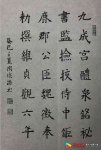 九成宮醴泉銘秘
書監檢校侍中鉅
鹿郡公臣魏徵奉
勅撰維貞觀六年
癸巳之夏